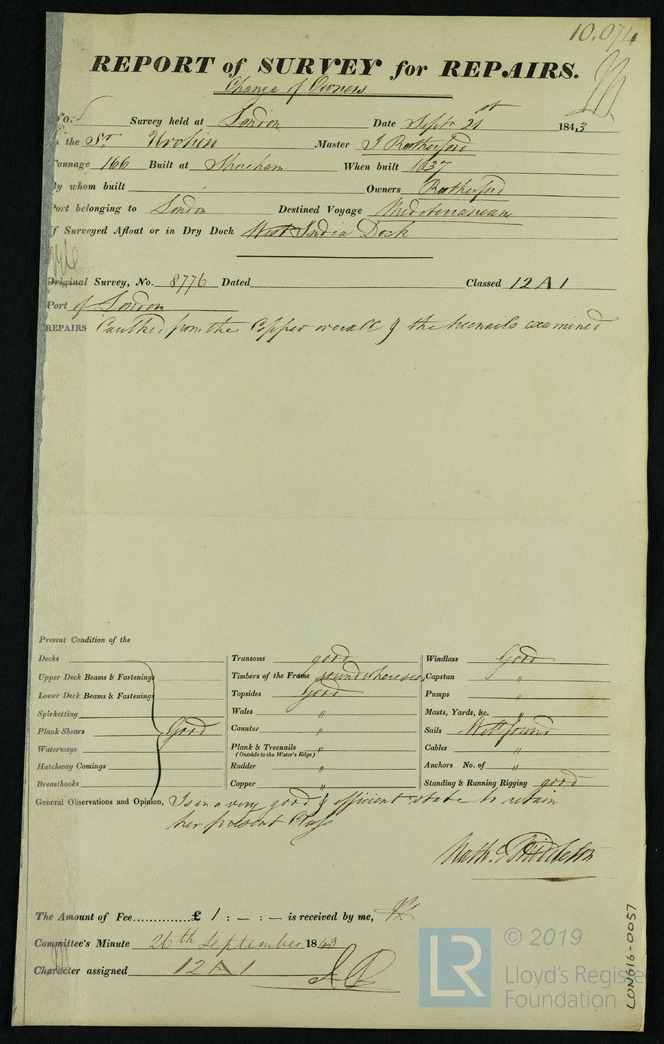 10,074
REPORT of SURVEY for REPAIRS.
Change of Owners
No. Survey held at London Date Septr 21st 1843
the Sr Urchin Master J Rutherford
Tonnage 166 Built at Shoreham When built 1837
By whom built Owners Rutherford
Port belonging to London Destined Voyage Mediteranean
If Surveyed Afloat or in Dry Dock West India Dock
Original Survey, No. 8776 Dated Classed 12 A 1
Port of London
REPAIRS Caulked from the Copper overall & the treenails examined
Present Condition of the
Decks Transoms good Windlass Good
Upper Deck Beams & Fastenings Timbers of the Frame sound where seen Capstan "
Lower Deck Beams & Fastenings Topsides Good Pumps "
Spirketting Wales " Masts, Yards, &c. "
Plank Shears Good Counter " Sails Well found
Waterways Plank & Treenails " Cables "
(Outside to the Water's Edge)
Hatchway Comings Rudder " Anchors No. of "
Breasthooks Copper " Standing & Running Rigging good
General Observations and Opinion, Is in a very good & efficient state to retain
her present Class
Nath. Middleton
The Amount of Fee..............£ 1 : - : - is received by me,
Committee's Minute 26th September 1843
Character assigned 12 A 1
LR © 2019
Lloyd's Register
Foundation
LON616-0057